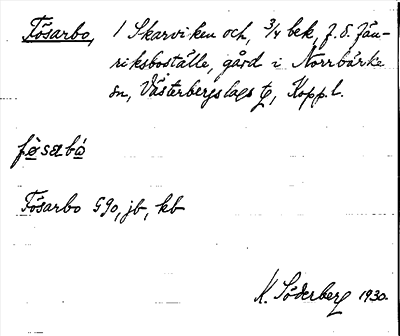 Fösarbo, 1 Skarviken och, 3/4 bek, f.d. fän-
riksboställe, gård i Norrbärke
sn, Västerbergslags tg, Kopp. l.
fø̀saƀó
Fösarbo G90, jb, kb
K. Söderberg 1930.